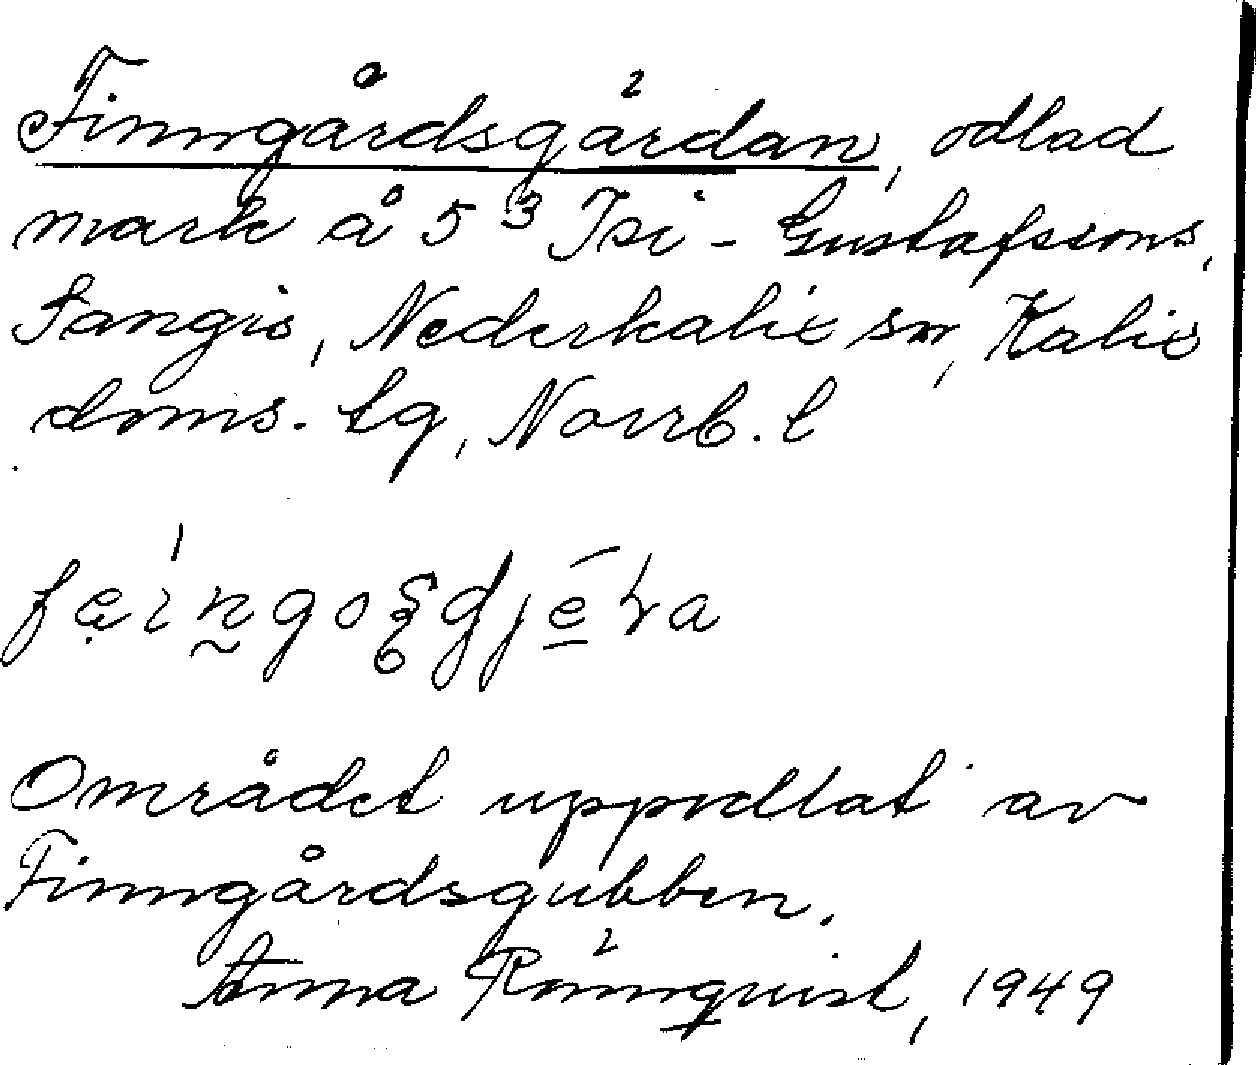 Finngårdsgärdan, odlad
mark å 5³ Isi - Gustafssons,
Sangis, Nederkalix sn, Kalix
doms. tg, Norrb. l
Området uppodlat av
Finngårdsgubben.
Anna Rönnquist, 1949